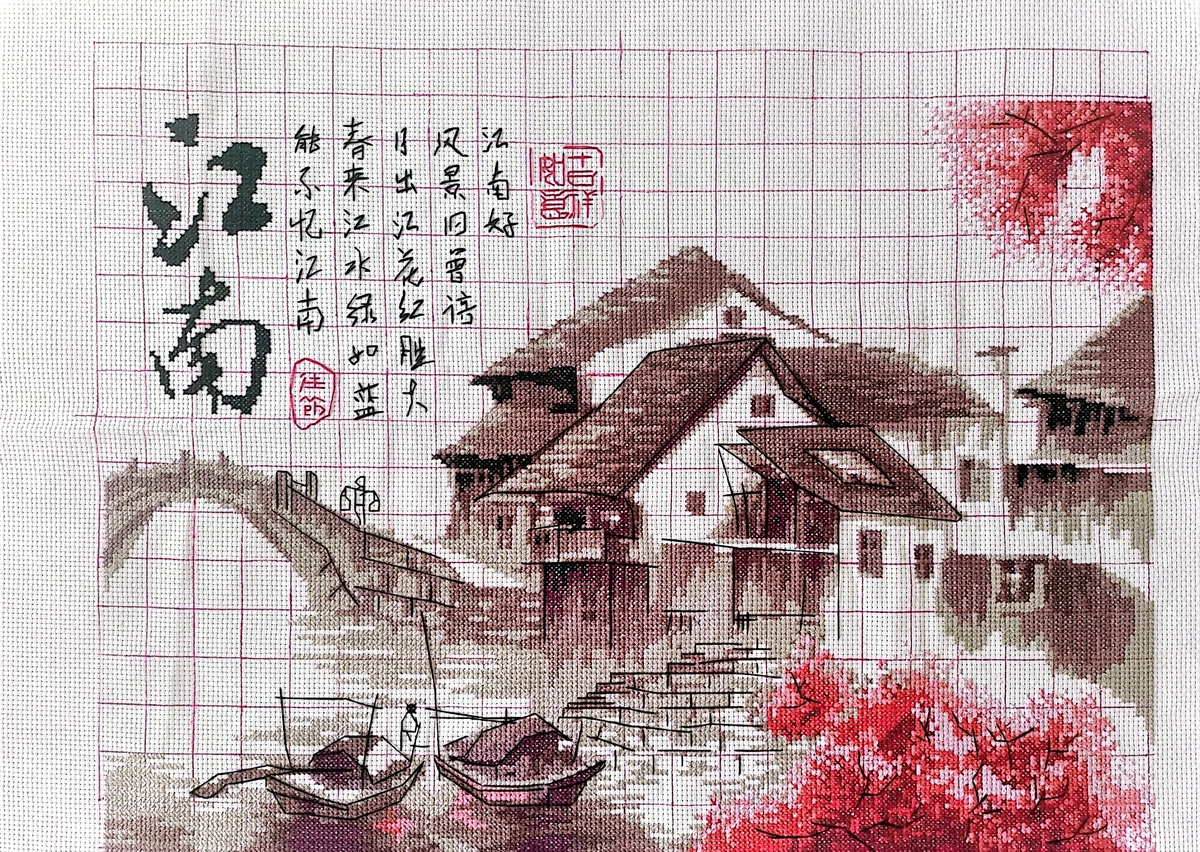 吉祥
如意
江南好
风景旧曾谙
日出江花红胜火
春来江水绿如蓝
能不忆江南
江南